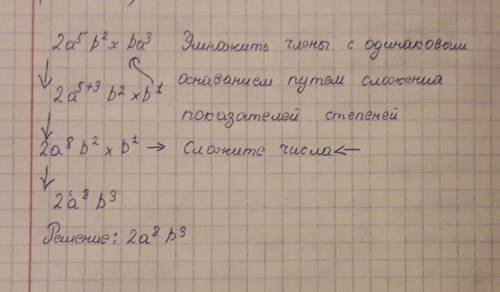 2a⁵ b² × ba³ Умножить члены с одинаковым
основанием путем сложения
2a⁵⁺³ b² × b¹
показателей степеней
2a⁸ b² × b¹ → Сложите числа ←
2a⁸ b³
Решение: 2a⁸ b³